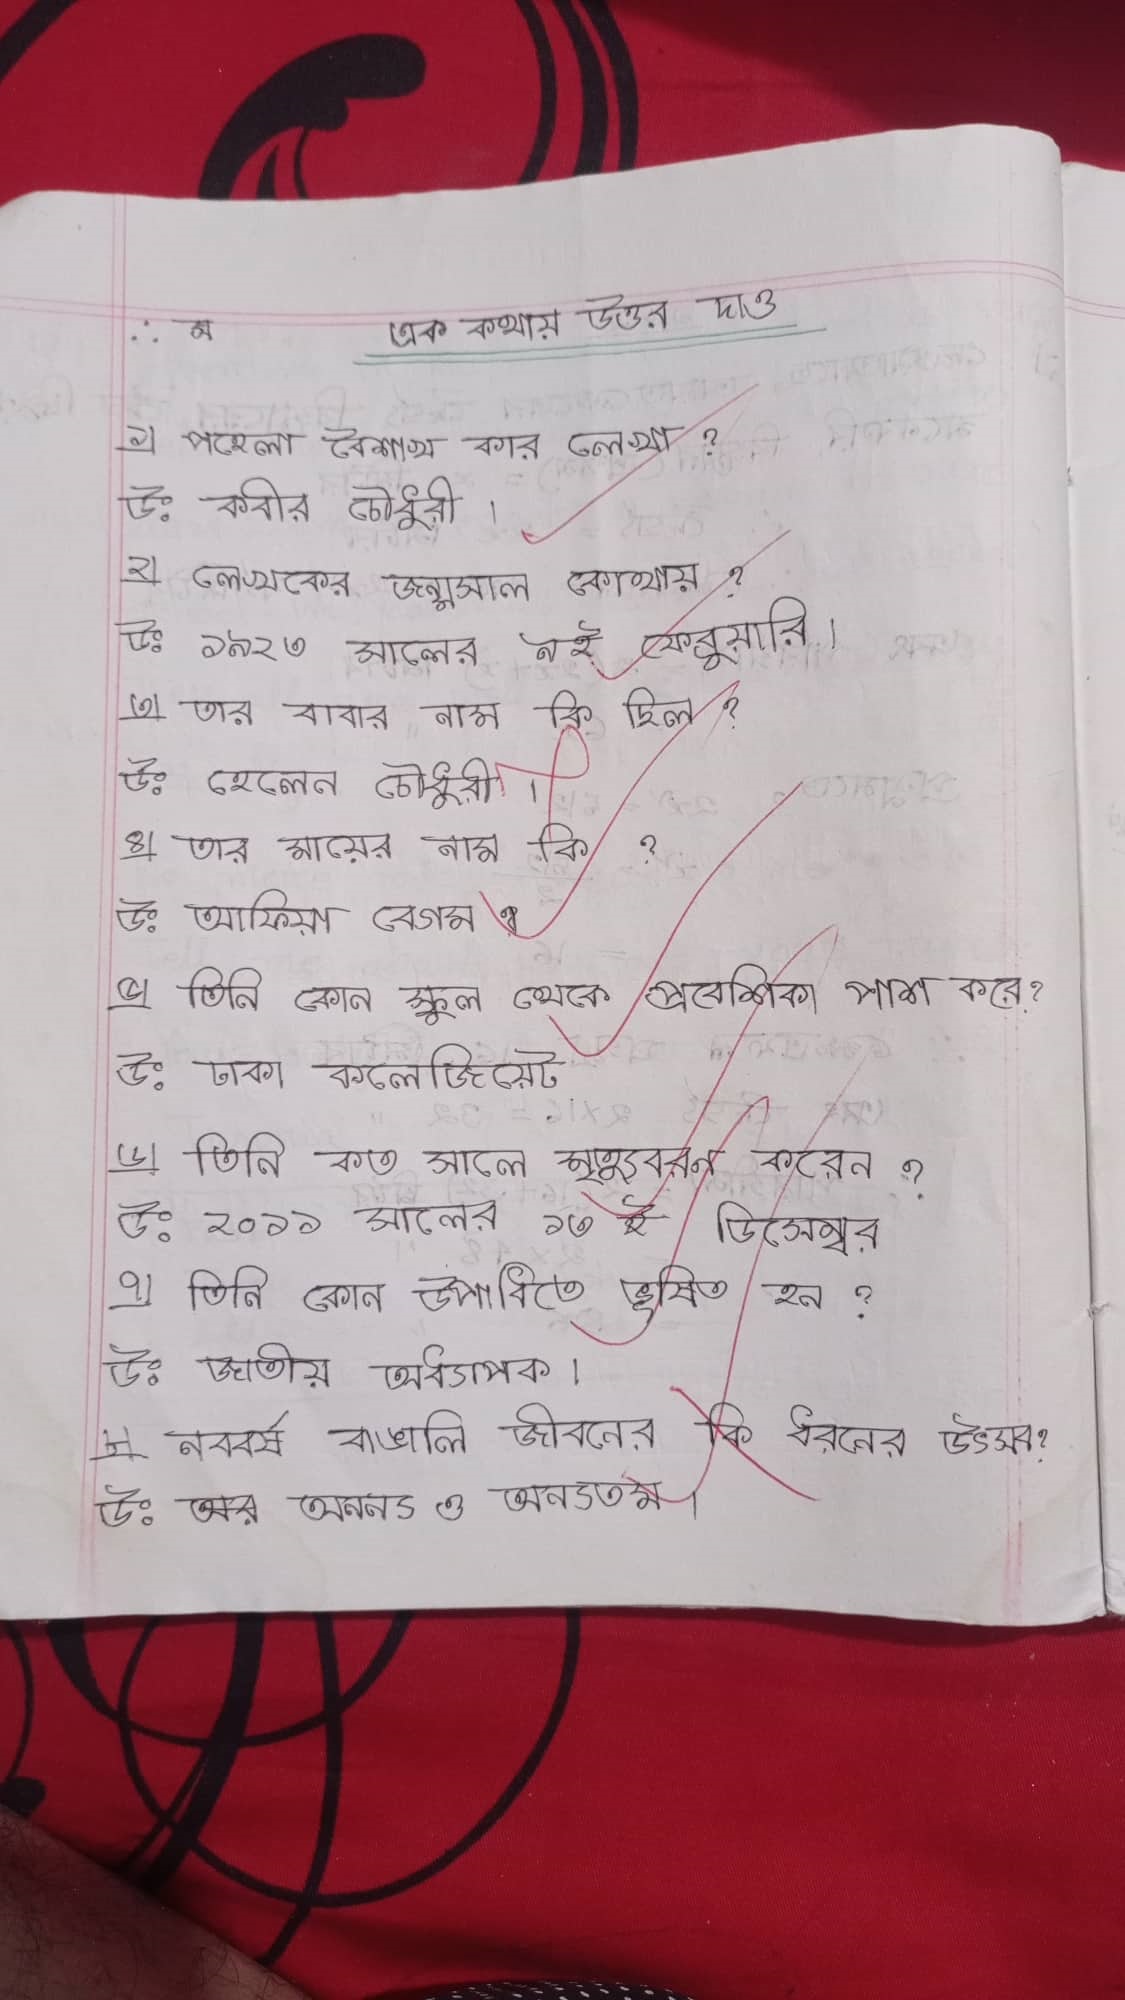 ∴ ন
এক কথায় উত্তর দাও
১। পহেলা বৈশাখ কার লেখা ?
উঃ কবীর চৌধুরী ।
২। লেখকের জন্মসাল কোথায় ?
উঃ ১৯২৩ সালের ৯ই ফেব্রুয়ারি ।
৩। তার বাবার নাম কি ছিল ?
উঃ হেলেন চৌধুরী ।
৪। তার মায়ের নাম কি ?
উঃ আফিয়া বেগম
৫। তিনি কোন স্কুল থেকে প্রবেশিকা পাশ করে ?
উঃ ঢাকা কলেজিয়েট
৬। তিনি কত সালে মৃত্যুবরন করেন ?
উঃ ২০১১ সালের ১৩ ই ডিসেম্বর
৭। তিনি কোন উপাধিতে ভূষিত হন ?
উঃ জাতীয় অধ্যাপক ।
৮। নববর্ষ বাঙালি জীবনের কি ধরনের উৎসব ?
উঃ অনন্য ও অন্যতম ।